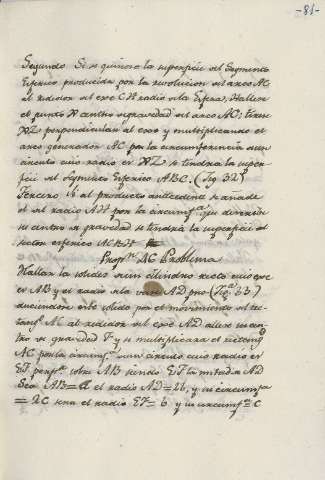 -81-
Segundo. Si se quiere la superficie del Segmento
Esferico producida por la revolucion del arco AC
al rededor del exe CH radio de la Esfera; Hallese
el punto Z centro de gravedad del arco AC; tirese
XZ perpendicular al exe y multiplicando el
arco generador AC por la circunferencia de un
circulo cuio radio es XZ se tendrá la super-
ficie del Segmento Esferico ABC. (Fig 32)
Tercero Si al producto antecedente se añade
el del radio AH por la circumf.ª que describe
su centro de gravedad se tendrá la superficie del
sector esferico ACBH
Prop.n Problema
Hallar la solidez de un cilindro recto cuio exe
es AB y el radio de la vase AD pro- (Fig.ª 33)
duciendose este solido por el movimiento del rec-
tang.º AC al rededor del exe AB allese su cen-
tro de gravedad F y si multiplicara el rectang.º
AC por la circumf.ª de un circulo cuio radio es
EF perp.r sobre AB siendo EF la mitad de AD
Sea AB = a el radio AD = 2b, y su circumf.ª
= 2C sera el radio EF = b y su circumf.ª = C